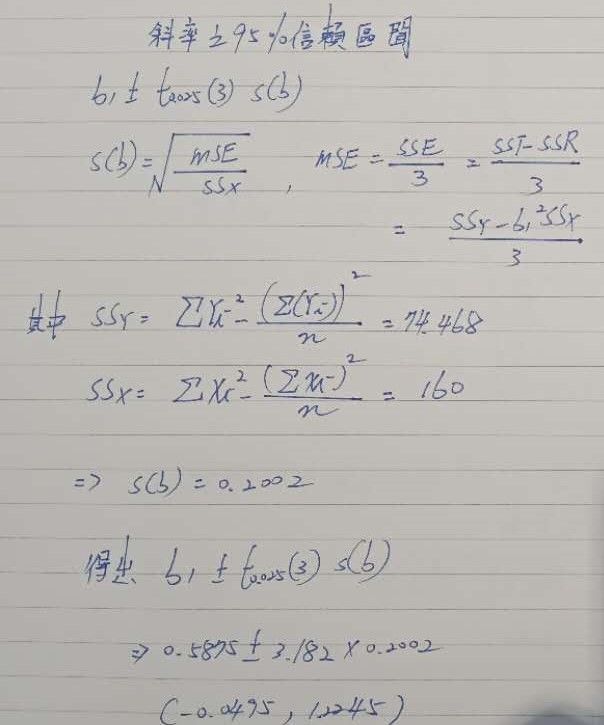 斜率之95%信賴區間
b₁ ± t₀.₀₂₅(3) s(b)
s(b) = √(MSE / SSX) , MSE = SSE / 3 = (SST - SSR) / 3
= (SSY - b₁²SSX) / 3
其中 SSY = ΣYi² - (Σ(Yi))² / n = 74.468
SSX = ΣXi² - (ΣXi)² / n = 160
=> s(b) = 0.2002
得出 b₁ ± t₀.₀₂₅(3) s(b)
=> 0.5875 ± 3.182 × 0.2002
(-0.0495, 1.2245)